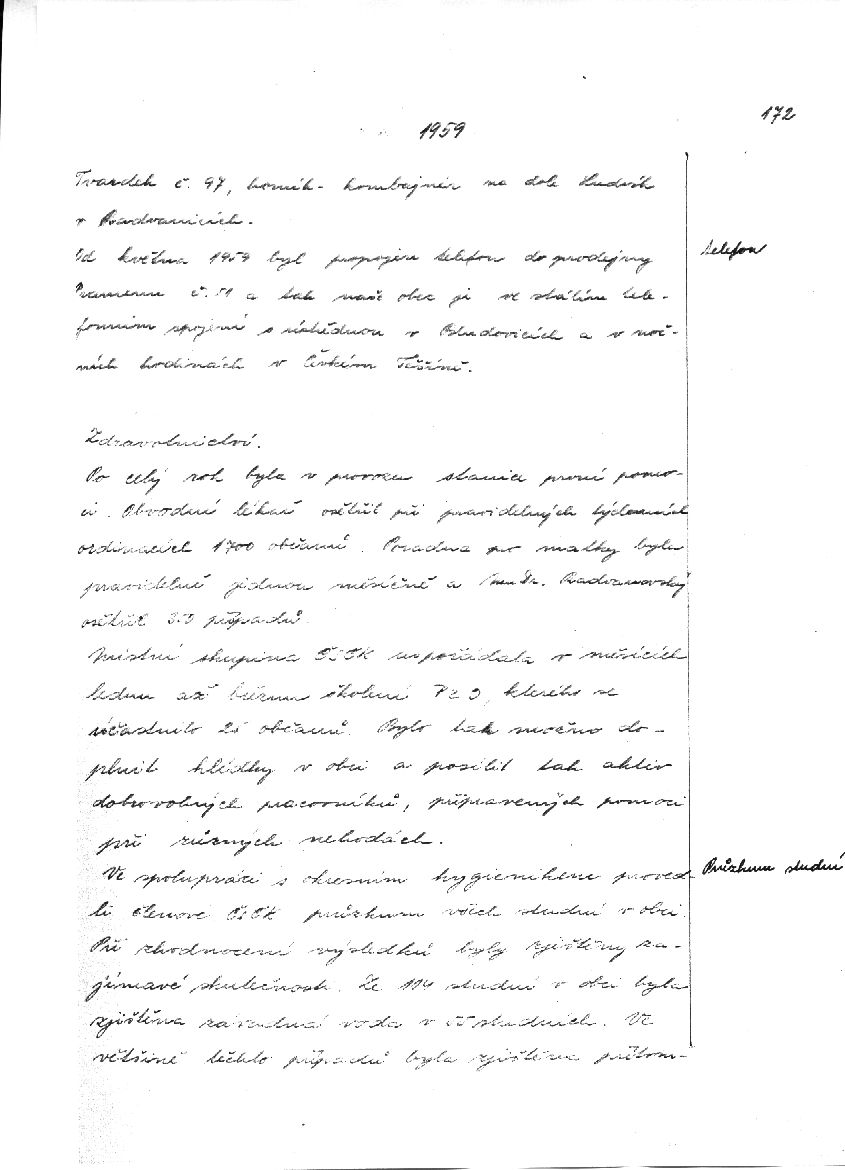 172
1959
Tvardek č. 97, horník-kombajnér na dole Ludvík
v Radvanicích.
Od května 1959 byl propojen telefon do prodejny
Pramenu č. 51 a tak naše obec je ve stálém tele-
telefon
fonním spojení s ústřednou v Bludovicích a v noč-
ních hodinách v Českém Těšíně.
Zdravotnictví.
Po celý rok byla v provozu stanice první pomo-
ci. Obvodní lékař ošetřil při pravidelných týdenních
ordinacích 1700 občanů. Poradna pro matky byla
pravidelně jednou měsíčně a MUDr. Radvanovský
ošetřil případů.
Místní skupina ČSČK uspořádala v měsících
lednu až březnu školení PZO, kterého se
účastnilo občanů. Bylo tak možno do-
plnit hlídky v obci a posílit tak aktiv
dobrovolných pracovníků, připravených pomoci
při různých nehodách.
Ve spolupráci s okresním hygienikem proved-
Průzkum studní
li členové ČSČK průzkum všech studní v obci.
Při zhodnocení výsledků byly zjištěny za-
jímavé skutečnosti. Ze 114 studní v obci byla
zjištěna závadná voda v 55 studních. Ve
většině těchto případů byla zjištěna přítom-